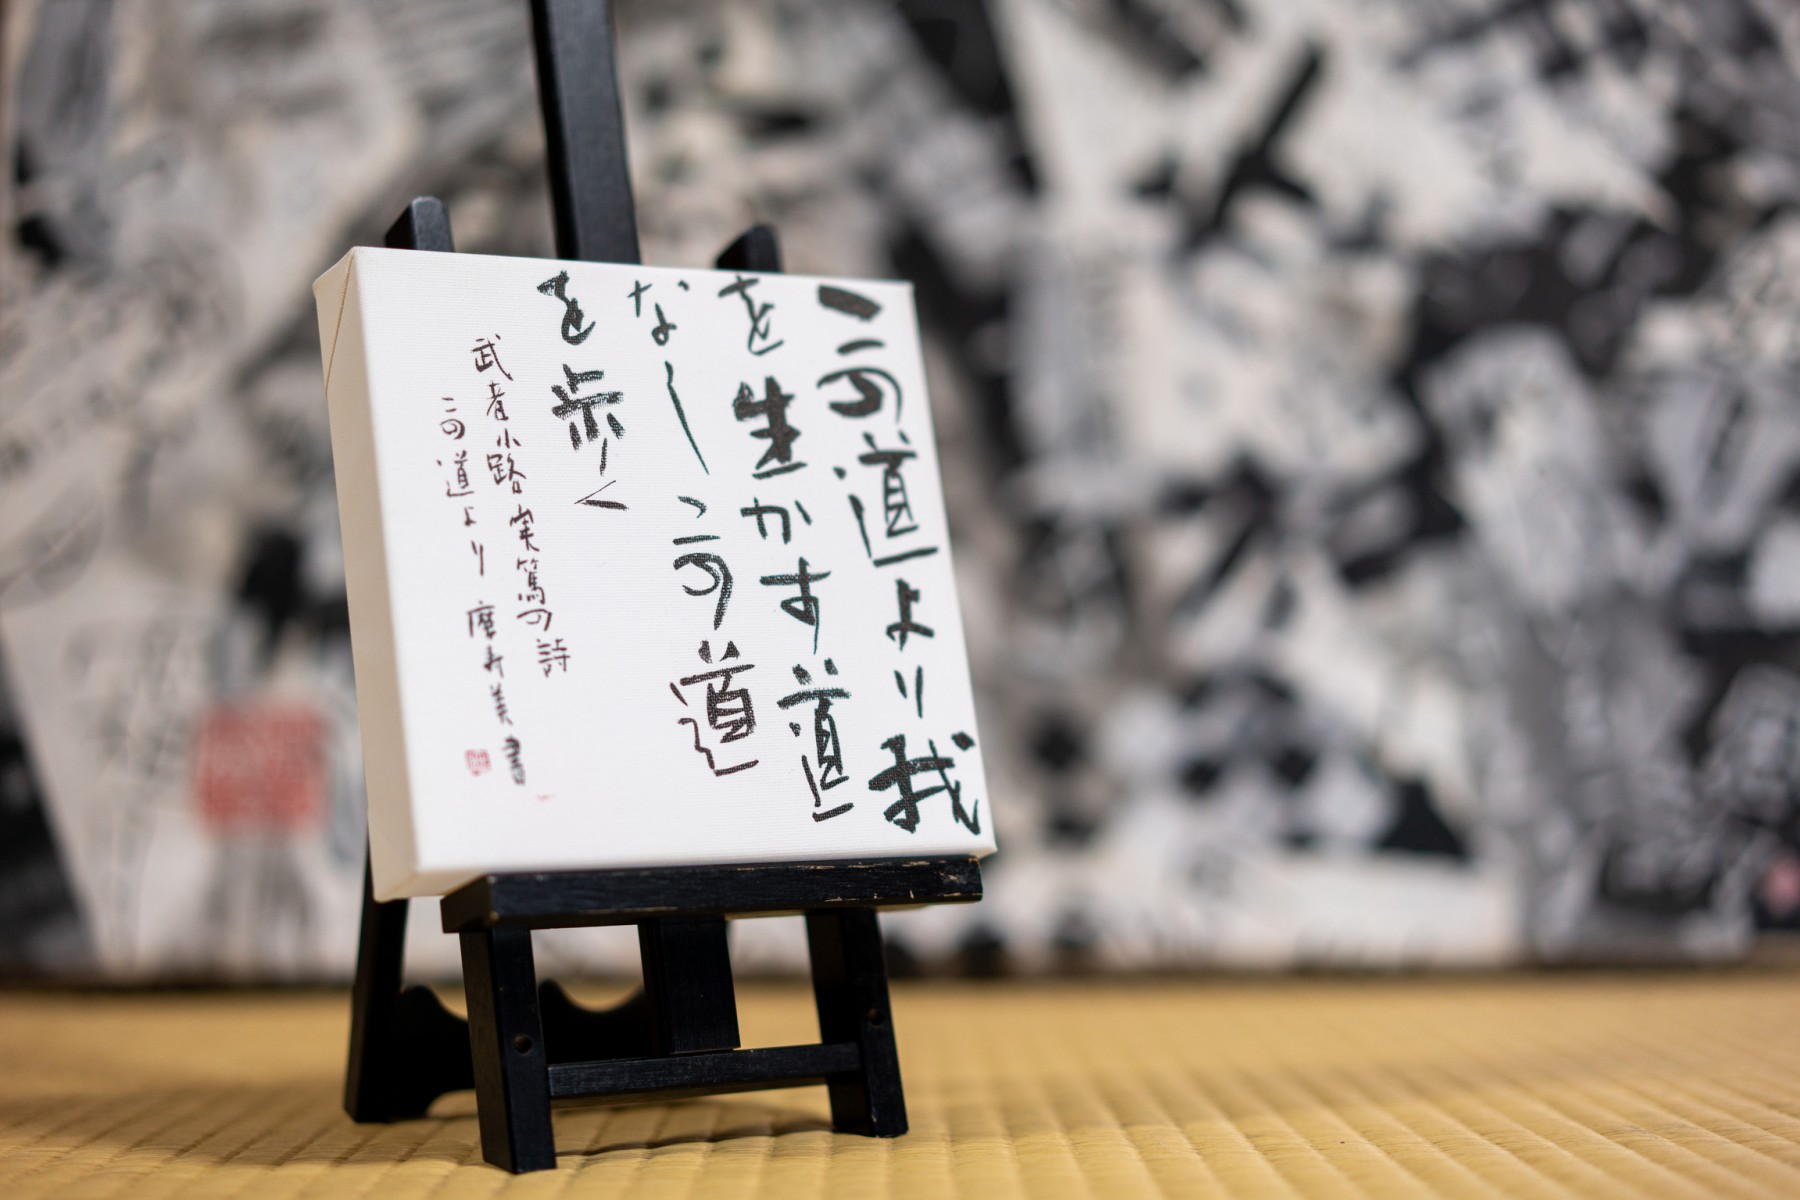 この道より我
を生かす道
なしこの道
を歩く
武者小路実篤の詩
この道より 摩寿美書